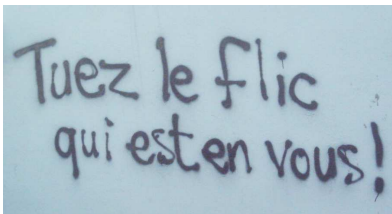 Tuez le flic
qui est en vous!